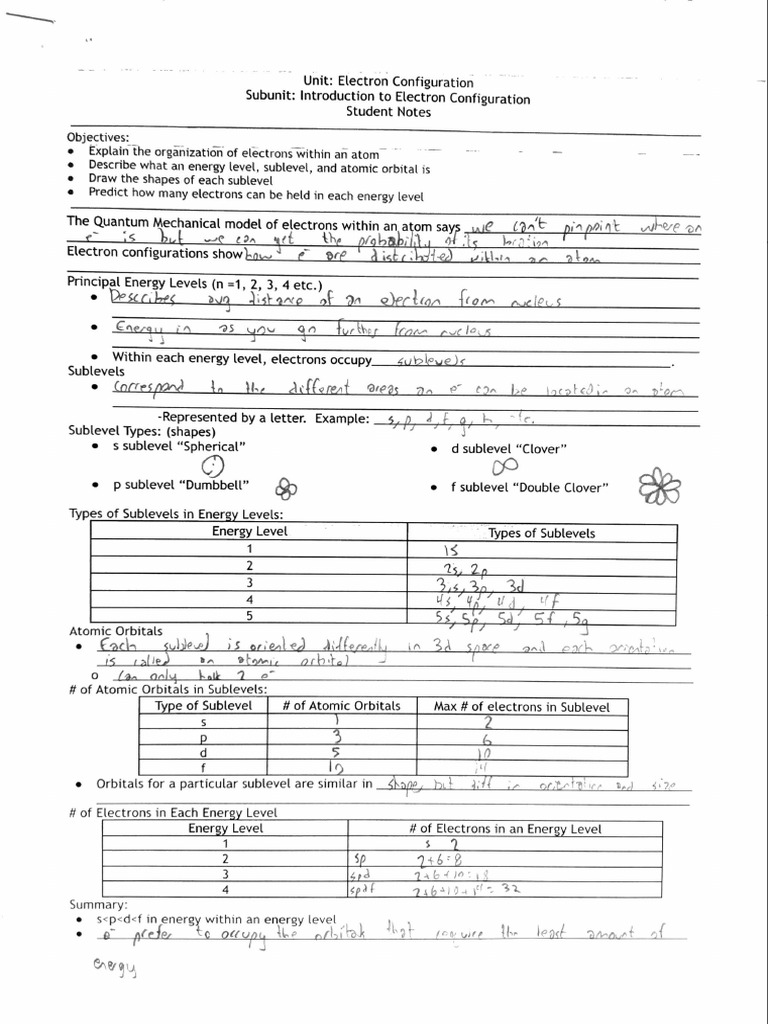 Unit: Electron Configuration
Subunit: Introduction to Electron Configuration
Student Notes
Objectives:
• Explain the organization of electrons within an atom
• Describe what an energy level, sublevel, and atomic orbital is
• Draw the shapes of each sublevel
• Predict how many electrons can be held in each energy level
The Quantum Mechanical model of electrons within an atom says we can't pinpoint where an
e⁻ is but we can get the probability of its location
Electron configurations show how e⁻ are distributed within an atom
Principal Energy Levels (n =1, 2, 3, 4 etc.)
• Describes avg distance of an electron from nucleus
• Energy in as you go further from nucleus
• Within each energy level, electrons occupy sublevels.
Sublevels
• Correspond to the different areas an e⁻ can be located in an atom
-Represented by a letter. Example: s, p, d, f, g, h, etc.
Sublevel Types: (shapes)
• s sublevel “Spherical” • d sublevel “Clover”
• p sublevel “Dumbbell” • f sublevel “Double Clover”
Types of Sublevels in Energy Levels:
Energy Level Types of Sublevels
1 1s
2 2s, 2p
3 3s, 3p, 3d
4 4s, 4p, 4d, 4f
5 5s, 5p, 5d, 5f, 5g
Atomic Orbitals
• Each sublevel is oriented differently in 3d space and each orientation
is called an atomic orbital
o Can only hold 2 e⁻
# of Atomic Orbitals in Sublevels:
Type of Sublevel # of Atomic Orbitals Max # of electrons in Sublevel
s 1 2
p 3 6
d 5 10
f 10 14
• Orbitals for a particular sublevel are similar in shape, but diff in orientation and size
# of Electrons in Each Energy Level
Energy Level # of Electrons in an Energy Level
1 s 2
2 sp 2+6=8
3 spd 2+6+10=18
4 spdf 2+6+10+14=32
Summary:
• s<p<d<f in energy within an energy level
• e⁻ prefer to occupy the orbitals that require the least amount of
energy